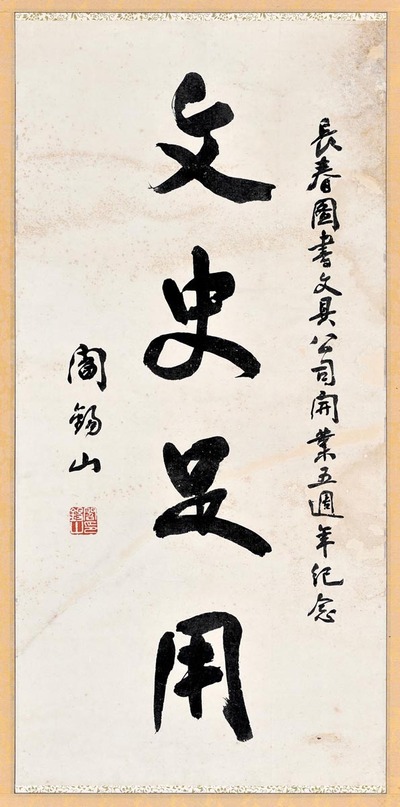 長春圖書文具公司開業五週年纪念
文史足用
閻錫山